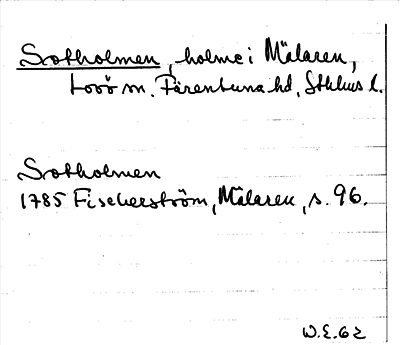 Sotholmen, holme i Mälaren,
Lovö sn. Färentuna hd, Sthlms l.
Sotholmen
1785 Fischerström, Mälaren, s. 96.
W.E.62